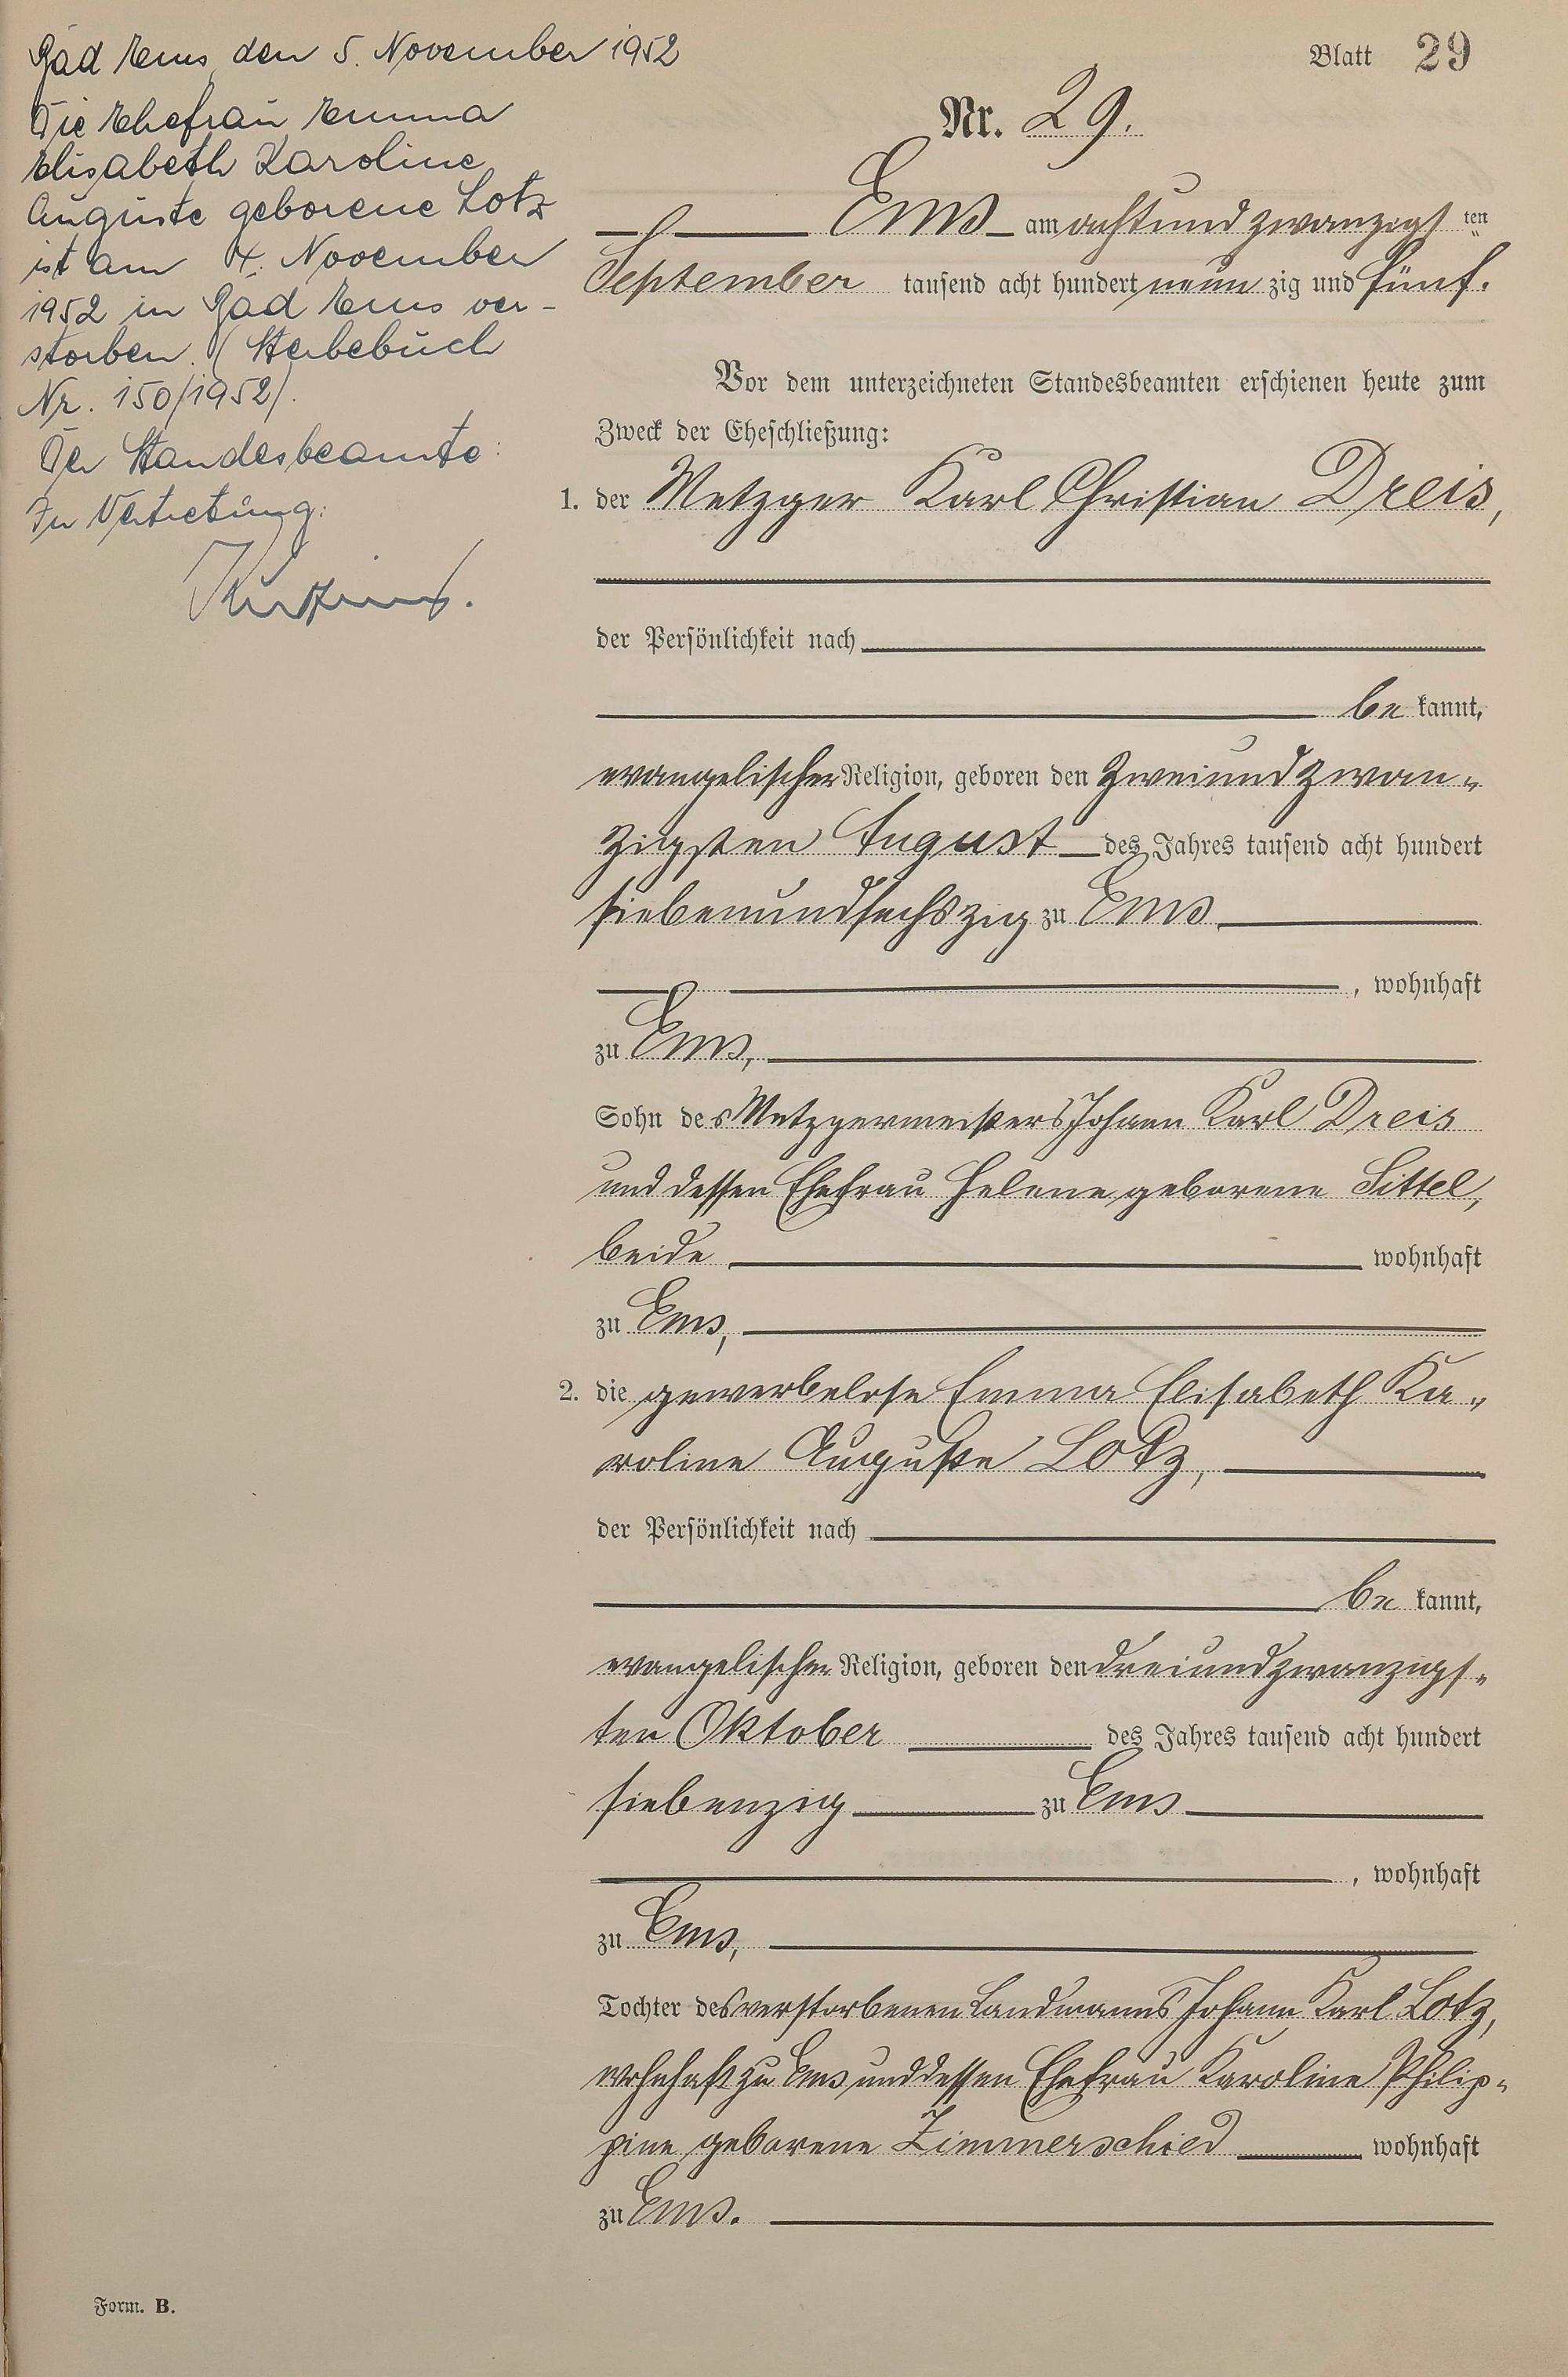 Bad Ems, den 5. November 1952
Die Ehefrau Emma
Elisabeth Karoline
Auguste geborene Lotz
ist am 4. November
1952 in Bad Ems ver-
storben. (Sterbebuch
Nr. 150/1952).
Der Standesbeamte:
In Vertretung:
Blatt 29
Nr. 29.
Ems am achtundzwanzigs ten
September tausend acht hundert neun zig und fünf.
Vor dem unterzeichneten Standesbeamten erschienen heute zum
Zweck der Eheschließung:
1. der Metzger Karl Christian Dreis,
der Persönlichkeit nach
be kannt,
evangelischer Religion, geboren den zweiundzwan-
zigsten August des Jahres tausend acht hundert
siebenundsechszig zu Ems
, wohnhaft
zu Ems,
Sohn des Metzgermeisters Johann Karl Dreis
und dessen Ehefrau Helene geborene Sittel,
beide wohnhaft
zu Ems,
2. die gewerbelose Emma Elisabeth Ka-
roline Auguste Lotz,
der Persönlichkeit nach
be kannt,
evangelischer Religion, geboren den dreiundzwanzigs-
ten Oktober des Jahres tausend acht hundert
siebenzig zu Ems
, wohnhaft
zu Ems,
Tochter des verstorbenen Landmanns Johann Karl Lotz,
wohnhaft zu Ems und dessen Ehefrau Karoline Philip-
pine geborene Zimmerschied wohnhaft
zu Ems.
Form. B.